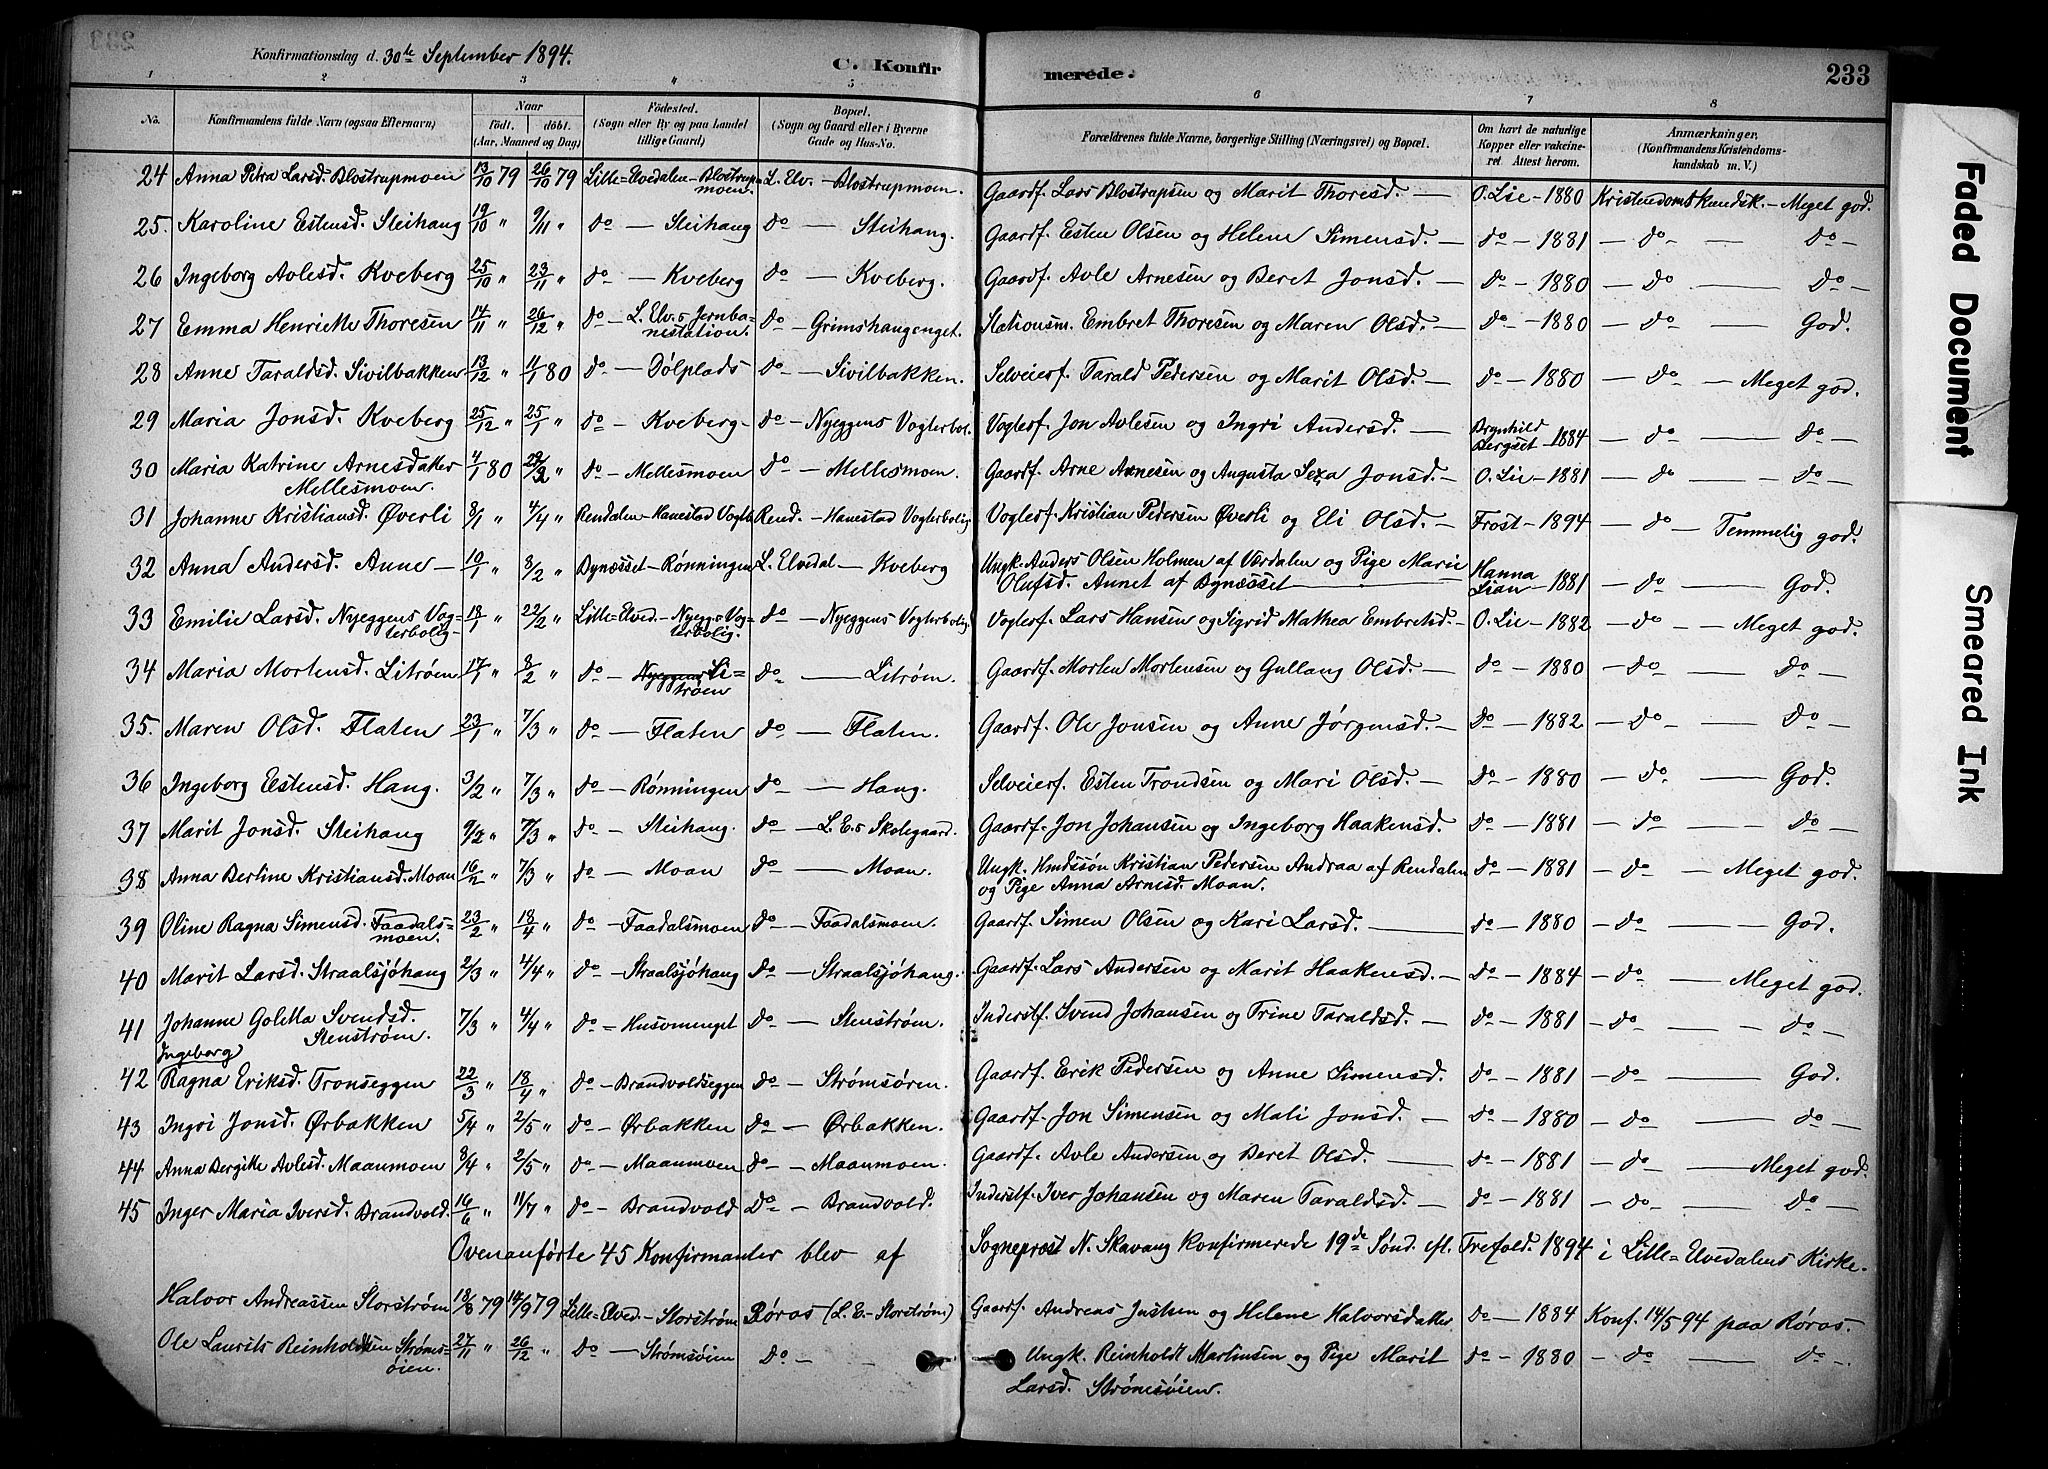 Konfirmationsdag d. 30te September 1894.
C. Konfir
merede.
233
1 2 3 " 5 6 7 8
No. Konfirmandens fulde Navn (ogsaa Efternavn) Naar födt. döbt. (Aar, Maaned og Dag) Födested. (Sogn eller By og paa Landet tillige Gaard) Bopæl. (Sogn og Gaard eller i Byerne Gade og Hus-No. Forældrenes fulde Navne, borgerlige Stilling (Næringsvei) og Bopæl. Om havt de naturlige Kopper eller vaccineret Attest herom. Anmærkninger. (Konfirmandens Kristendomskundskab m. V.)
24 Anna Petra Larsd. Blostrupmoen 13/10 79 26/10 79 Lille=Elvedalen – Blostrupmoen L. Elv. – Blostrupmoen. Gaardf. Lars Blostrupsen og Marit Thoresd. — O. Lie – 1880 Kristendomskundsk. – Meget god.
25. Karoline Estensd. Steihaug 19/10 " 9/11 " do — Steihaug do — Steihaug. Gaardf. Esten Olsen og Helene Simensd. — do – 1881 – do — do –
26 Ingeborg Avlesd. Kveberg 25/10 " 23/11 " do — Kveberg do — Kveberg. Gaardf. Avle Arnesen og Beret Jonsd. — do – 1880 – do — do –
27 Emma Henriette Thoresen 14/11 " 26/12 " do – L. Elv.s Jernbanestation. do – Grimshaugenget. Stationsm. Embret Thoresen og Maren Olsd. – do – 1880 – do — God.
28 Anne Taraldsd. Sivilbakken 13/12 " 11/1 80 do — Dølplads do — Sivilbakken. Selveierf. Tarald Pedersen og Marit Olsd. – do – 1880 – do — Meget god.
29 Maria Jonsd. Kveberg 25/12 " 25/1 " do — Kveberg – do – Nyeggens Vogterbol. Vogterf. Jon Avlesen og Ingri Andersd. — Brynhild Bergset – 1884 – do — do –
30 Maria Katrine Arnesdatter Mellesmoen. 4/1 80 29/2 " do – Mellesmoen do – Mellesmoen. Gaardf. Arne Arnesen og Augusta Sexa Jonsd. – O. Lie – 1881 – do — do –
31 Johanne Kristiansd. Øverli 8/1 " 4/4 " Rendalen – Hanestad Vogtb Rend. – Hanestad Vogterbolig Vogterf. Kristian Pedersen Øverli og Eli Olsd. – Frost – 1894 – do – Temmelig god.
32 Anna Andersd. Anne – 10/1 " 8/2 " Bynæsset – Rønningen L. Elvedal – Kveberg Ungk. Anders Olsen Holmen af Værdalen og Pige Marie Olufsd. Annet af Bynæsset — Hanna Lian – 1881 – do — God.
33 Emilie Larsd. Nyeggens Vogterbolig – 18/1 " 22/2 " Lille=Elved. – Nyegg.s Vogterbolig. do – Nyeggens Vogterbolig. Vogterf. Lars Hansen og Sigrid Mathea Embretsd. – O. Lie – 1882 – do – Meget god.
34 Maria Mortensd. Litrøen 17/1 " 8/2 " do – Nyeggens Litrøen do — Litrøen. Gaardf. Morten Mortensen og Gullaug Olsd. – do – 1880 – do — do –
35. Maren Olsd. Flaten 23/1 " 7/3 " do – Flaten do – Flaten. Gaardf. Ole Jonsen og Anne Jørgensd. – do – 1882 – do — do –
36 Ingeborg Estensd. Haug. 3/2 " 7/3 " do – Rønningen do – Haug. Selveierf. Esten Trondsen og Mari Olsd. – do – 1880 – do — God.
37 Marit Jonsd. Steihaug 9/2 " 7/3 " do – Steihaug. do – L. E.s Skolegaard. Gaardf. Jon Johansen og Ingeborg Haakensd. do – 1881 – do — do –
38 Anna Berline Kristiansd. Moan 16/2 " 7/3 " do – Moan do — Moan. Ungk. Knudssøn Kristian Pedersen Andraa af Rendalen og Pige Anna Arnesd. Moan. do – 1881 – do – Meget god.
39 Oline Ragna Simensd. Faadalsmoen. 23/2 " 18/4 " do – Faadalsmoen do – Faadalsmoen. Gaardf. Simen Olsen og Kari Larsd. — do – 1880 – do — God.
40 Marit Larsd. Straalsjøhaug 2/3 " 4/4 " do – Straalsjøhaug do – Straalsjøhaug. Gaardf. Lars Andersen og Marit Haakensd. – do – 1884 – do — Meget god.
41 Johanne Goletta Svendsd. Stenstrøm. 7/3 " 4/4 " do = Husommenget do – Stenstrøm. Inderstf. Svend Johansen og Trine Taraldsd. – do – 1881 – do — do –
Ingeborg
42 Ragna Eriksd. Tronseggen 22/3 " 18/4 " do – Brandvoldseggen do – Strømsøren. Gaardf. Erik Pedersen og Anne Simensd. do – 1881 – do — God.
43 Ingri Jonsd. Ørbakken 5/4 " 2/5 " do – Ørbakken do – Ørbakken. Gaardf. Jon Simensen og Mali Jonsd. – do – 1880 – do — do –
44 Anna Bergitte Avlesd. Maanmoen 8/4 " 2/5 " do – Maanmoen do – Maanmoen. Gaardf. Avle Andersen og Beret Olsd. — do – 1881 – do — Meget god.
45 Inger Maria Iversd. Brandvold. 16/6 " 11/7 " do – Brandvold do – Brandvold. Inderstf. Iver Johansen og Maren Taraldsd. – do – 1881 – do — do –
Ovenanførte 45 Konfirmanter blev af Sogneprest N. Skavang konfirmerede 19de Sønd. eft. Trefold. 1894 i Lille=Elvedalens Kirke.
Halvor Andreassen Storstrøm 18/8 79 14/9 79 Lille=Elved. – Storstrøm Røros (L. E. – Storstrøm) Gaardf. Andreas Justsen og Helene Halvorsdatter do – 1884 Konf. 14/5 94 paa Røros.
Ole Laurits Reinholdtsen Strømsøien. 27/11 " 26/12 " do – Strømsøien do – Ungk. Reinholdt Martinsen og Pige Marit Larsd. Strømsøien. do – 1880 – do — do –
Faded Document
Smeared Ink